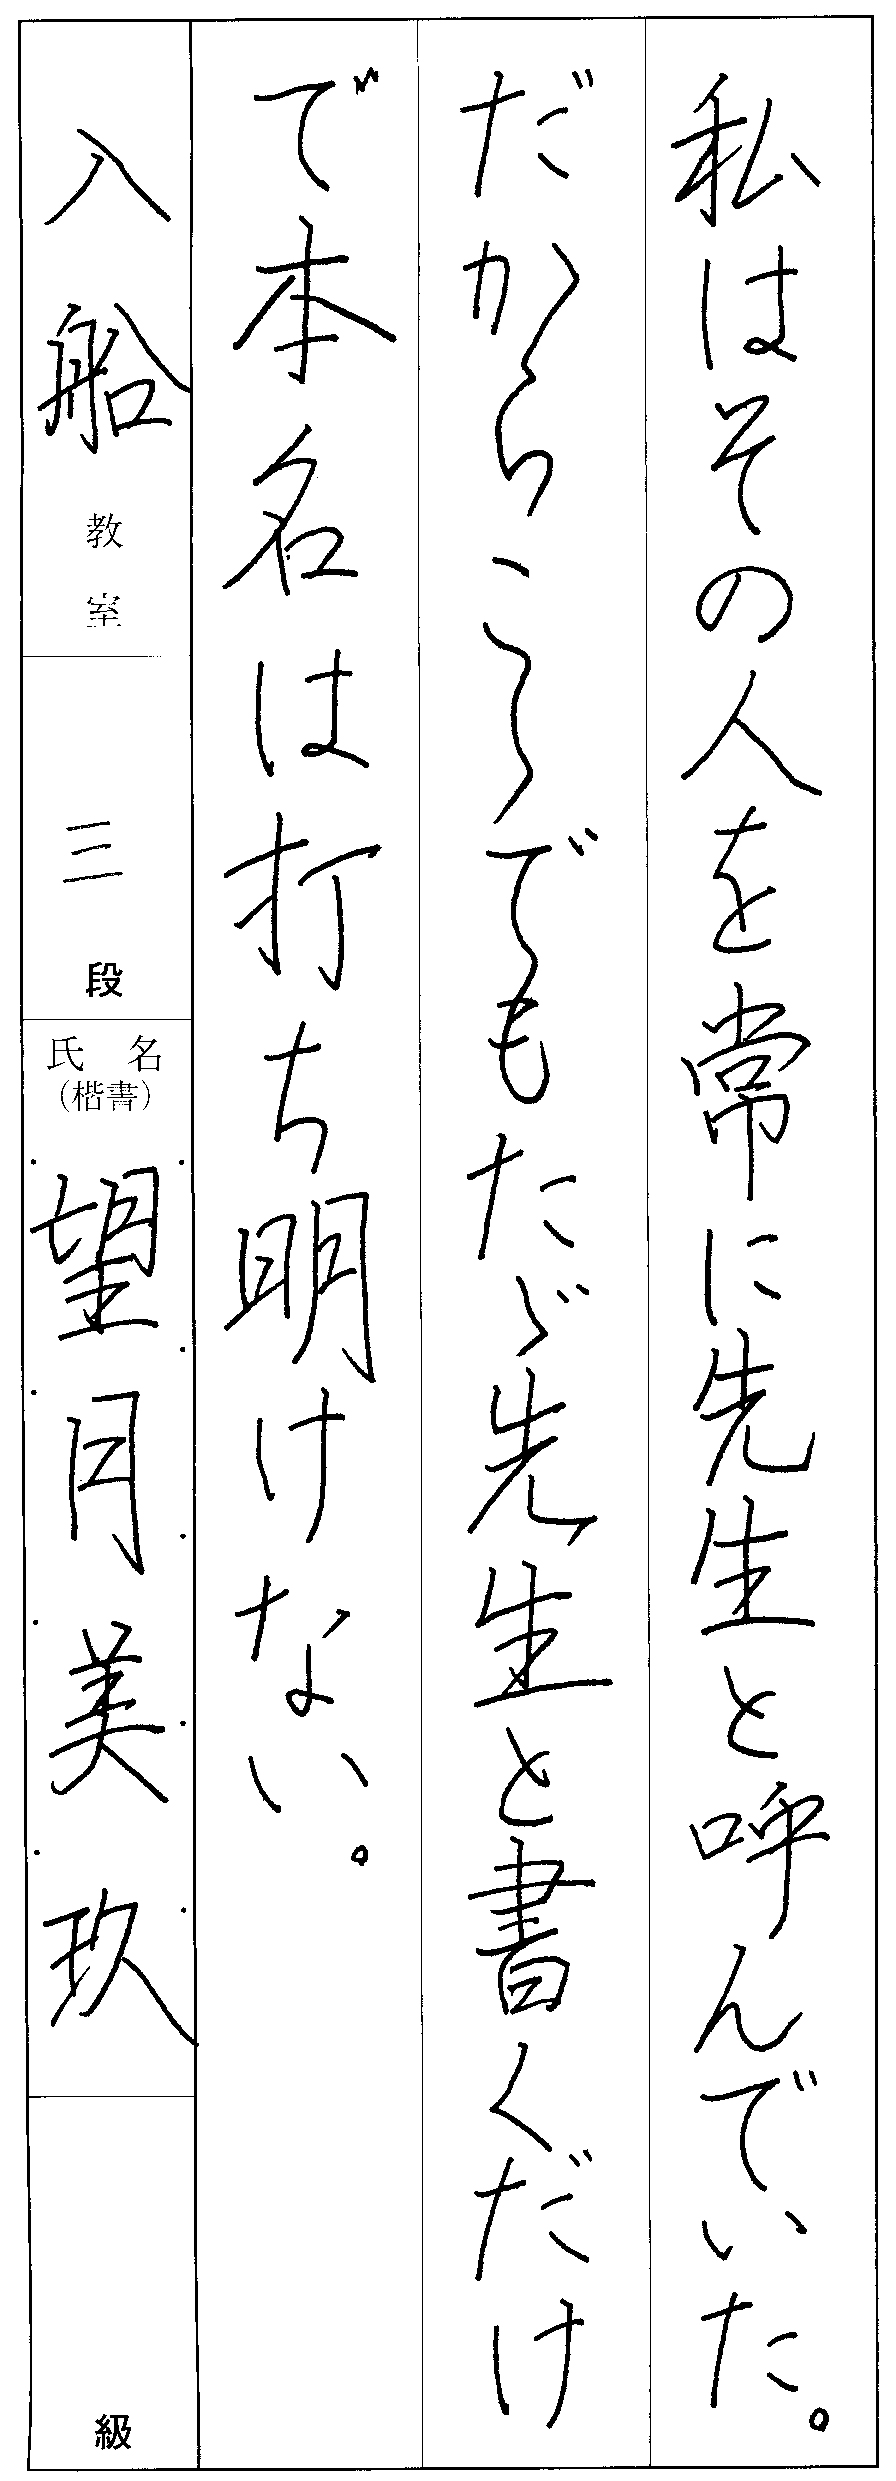 私はその人を常に先生と呼んでいた。
だからこゝでもたゞ先生と書くだけ
で本名は打ち明けない。
入船教室
三段
氏名
(楷書)
望月美玖
級